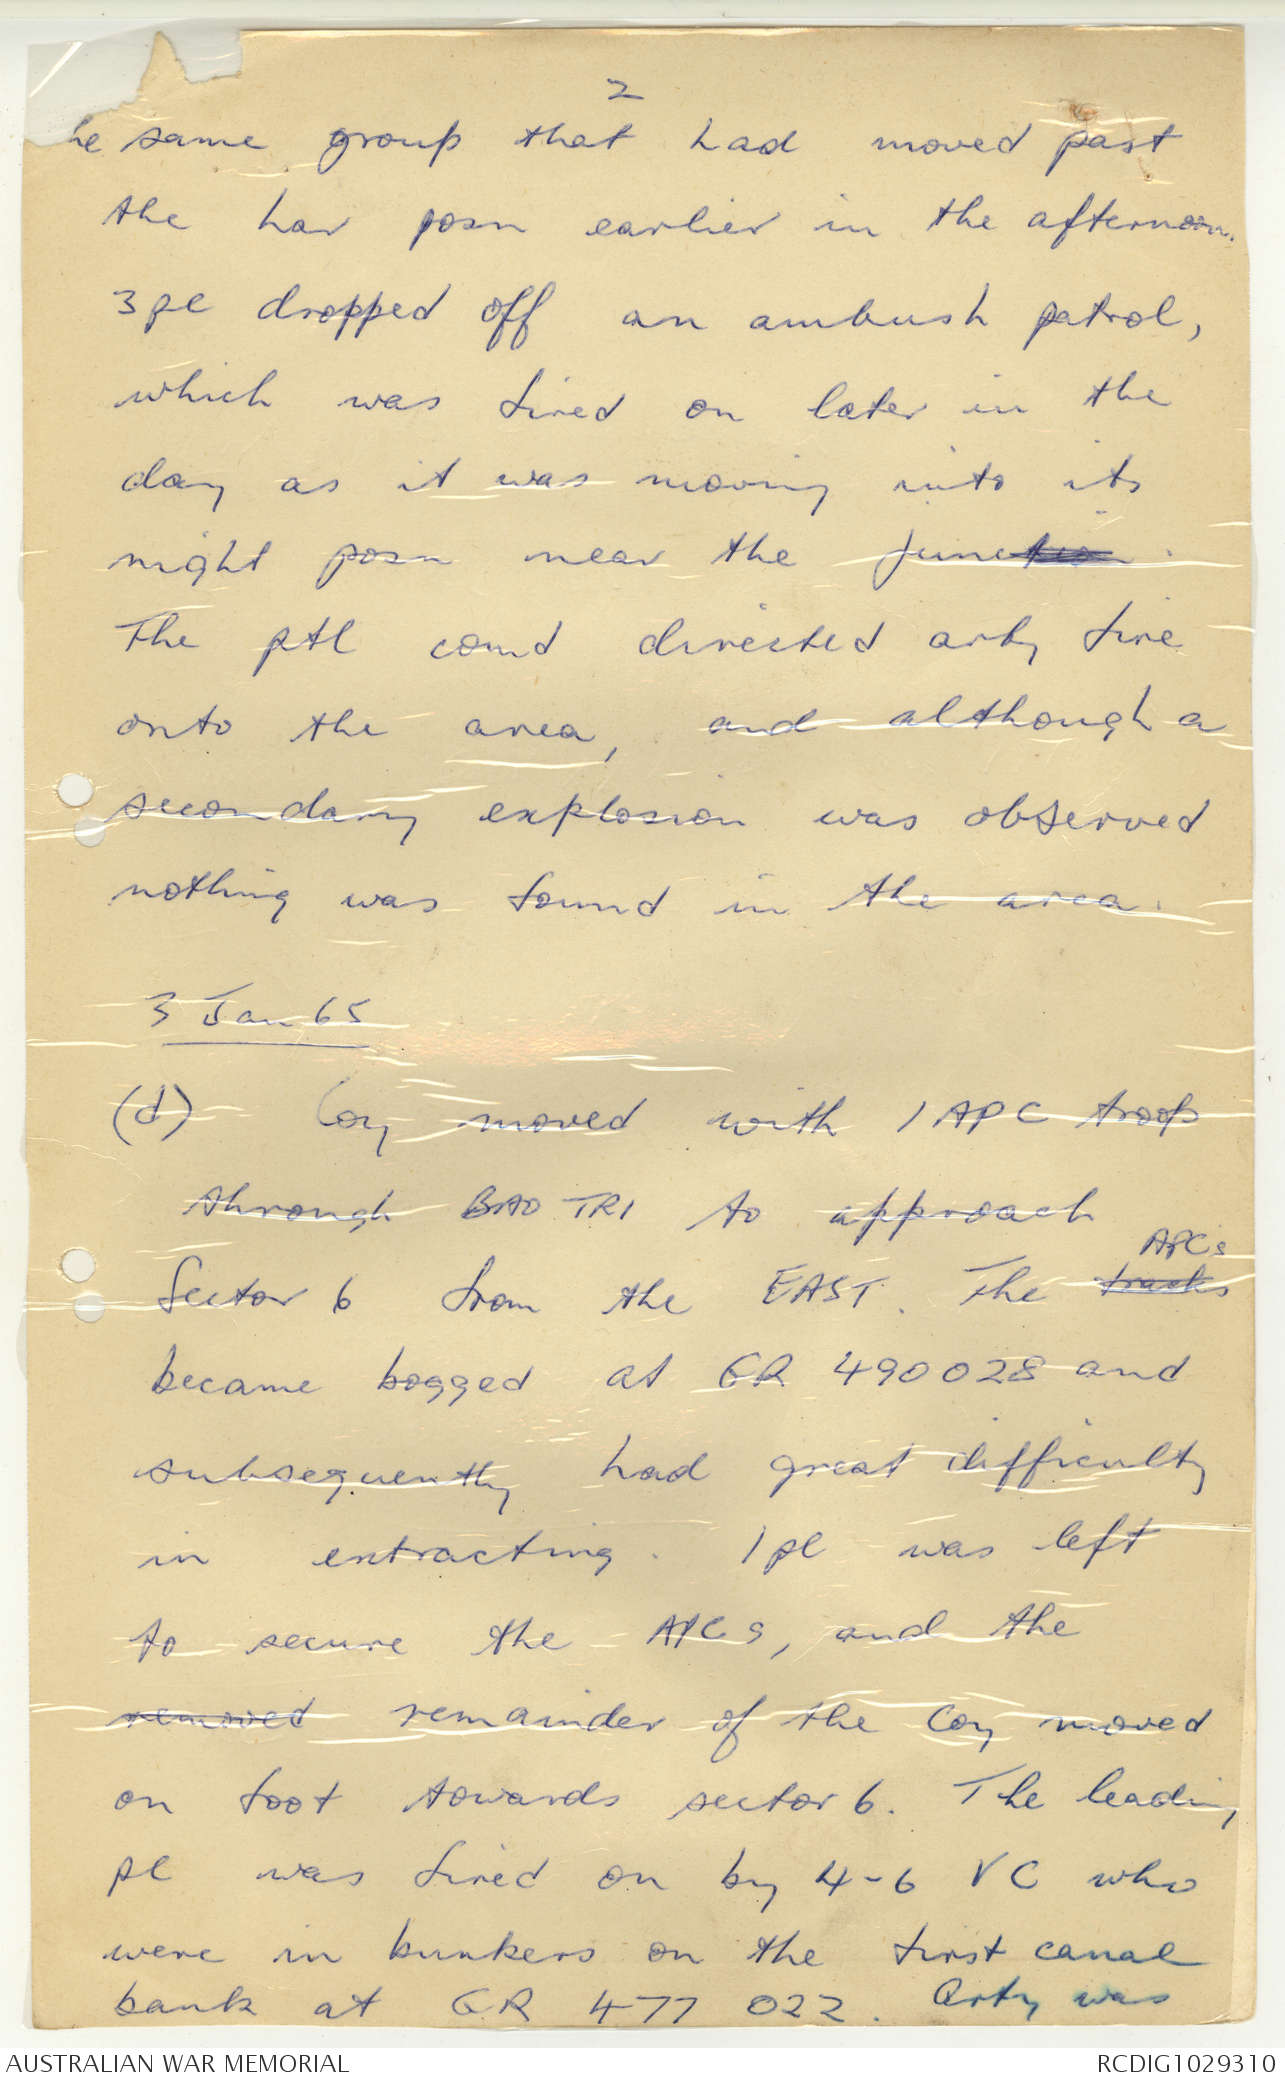 2
he same group that had moved past
the har posn earlier in the afternoon.
3 pl dropped off an ambush patrol,
which was fired on later in the
day as it was moving into its
night posn near the junction.
The ptl comd directed arty fire
onto the area, and although a
secondary explosion was observed
nothing was found in the area.
3 Jan 65
(d) Coy moved with 1 APC troop
through BAO TRI to approach
APCs
Sector 6 from the EAST. The tracks
became bogged at GR 490028 and
subsequently had great difficulty
in extracting. 1 pl was left
to secure the APCs, and the
removed remainder of the Coy moved
on foot towards sector 6. The leading
pl was fired on by 4-6 VC who
were in bunkers on the first canal
bank at GR 477 022. Arty was
AUSTRALIAN WAR MEMORIAL
RCDIG1029310